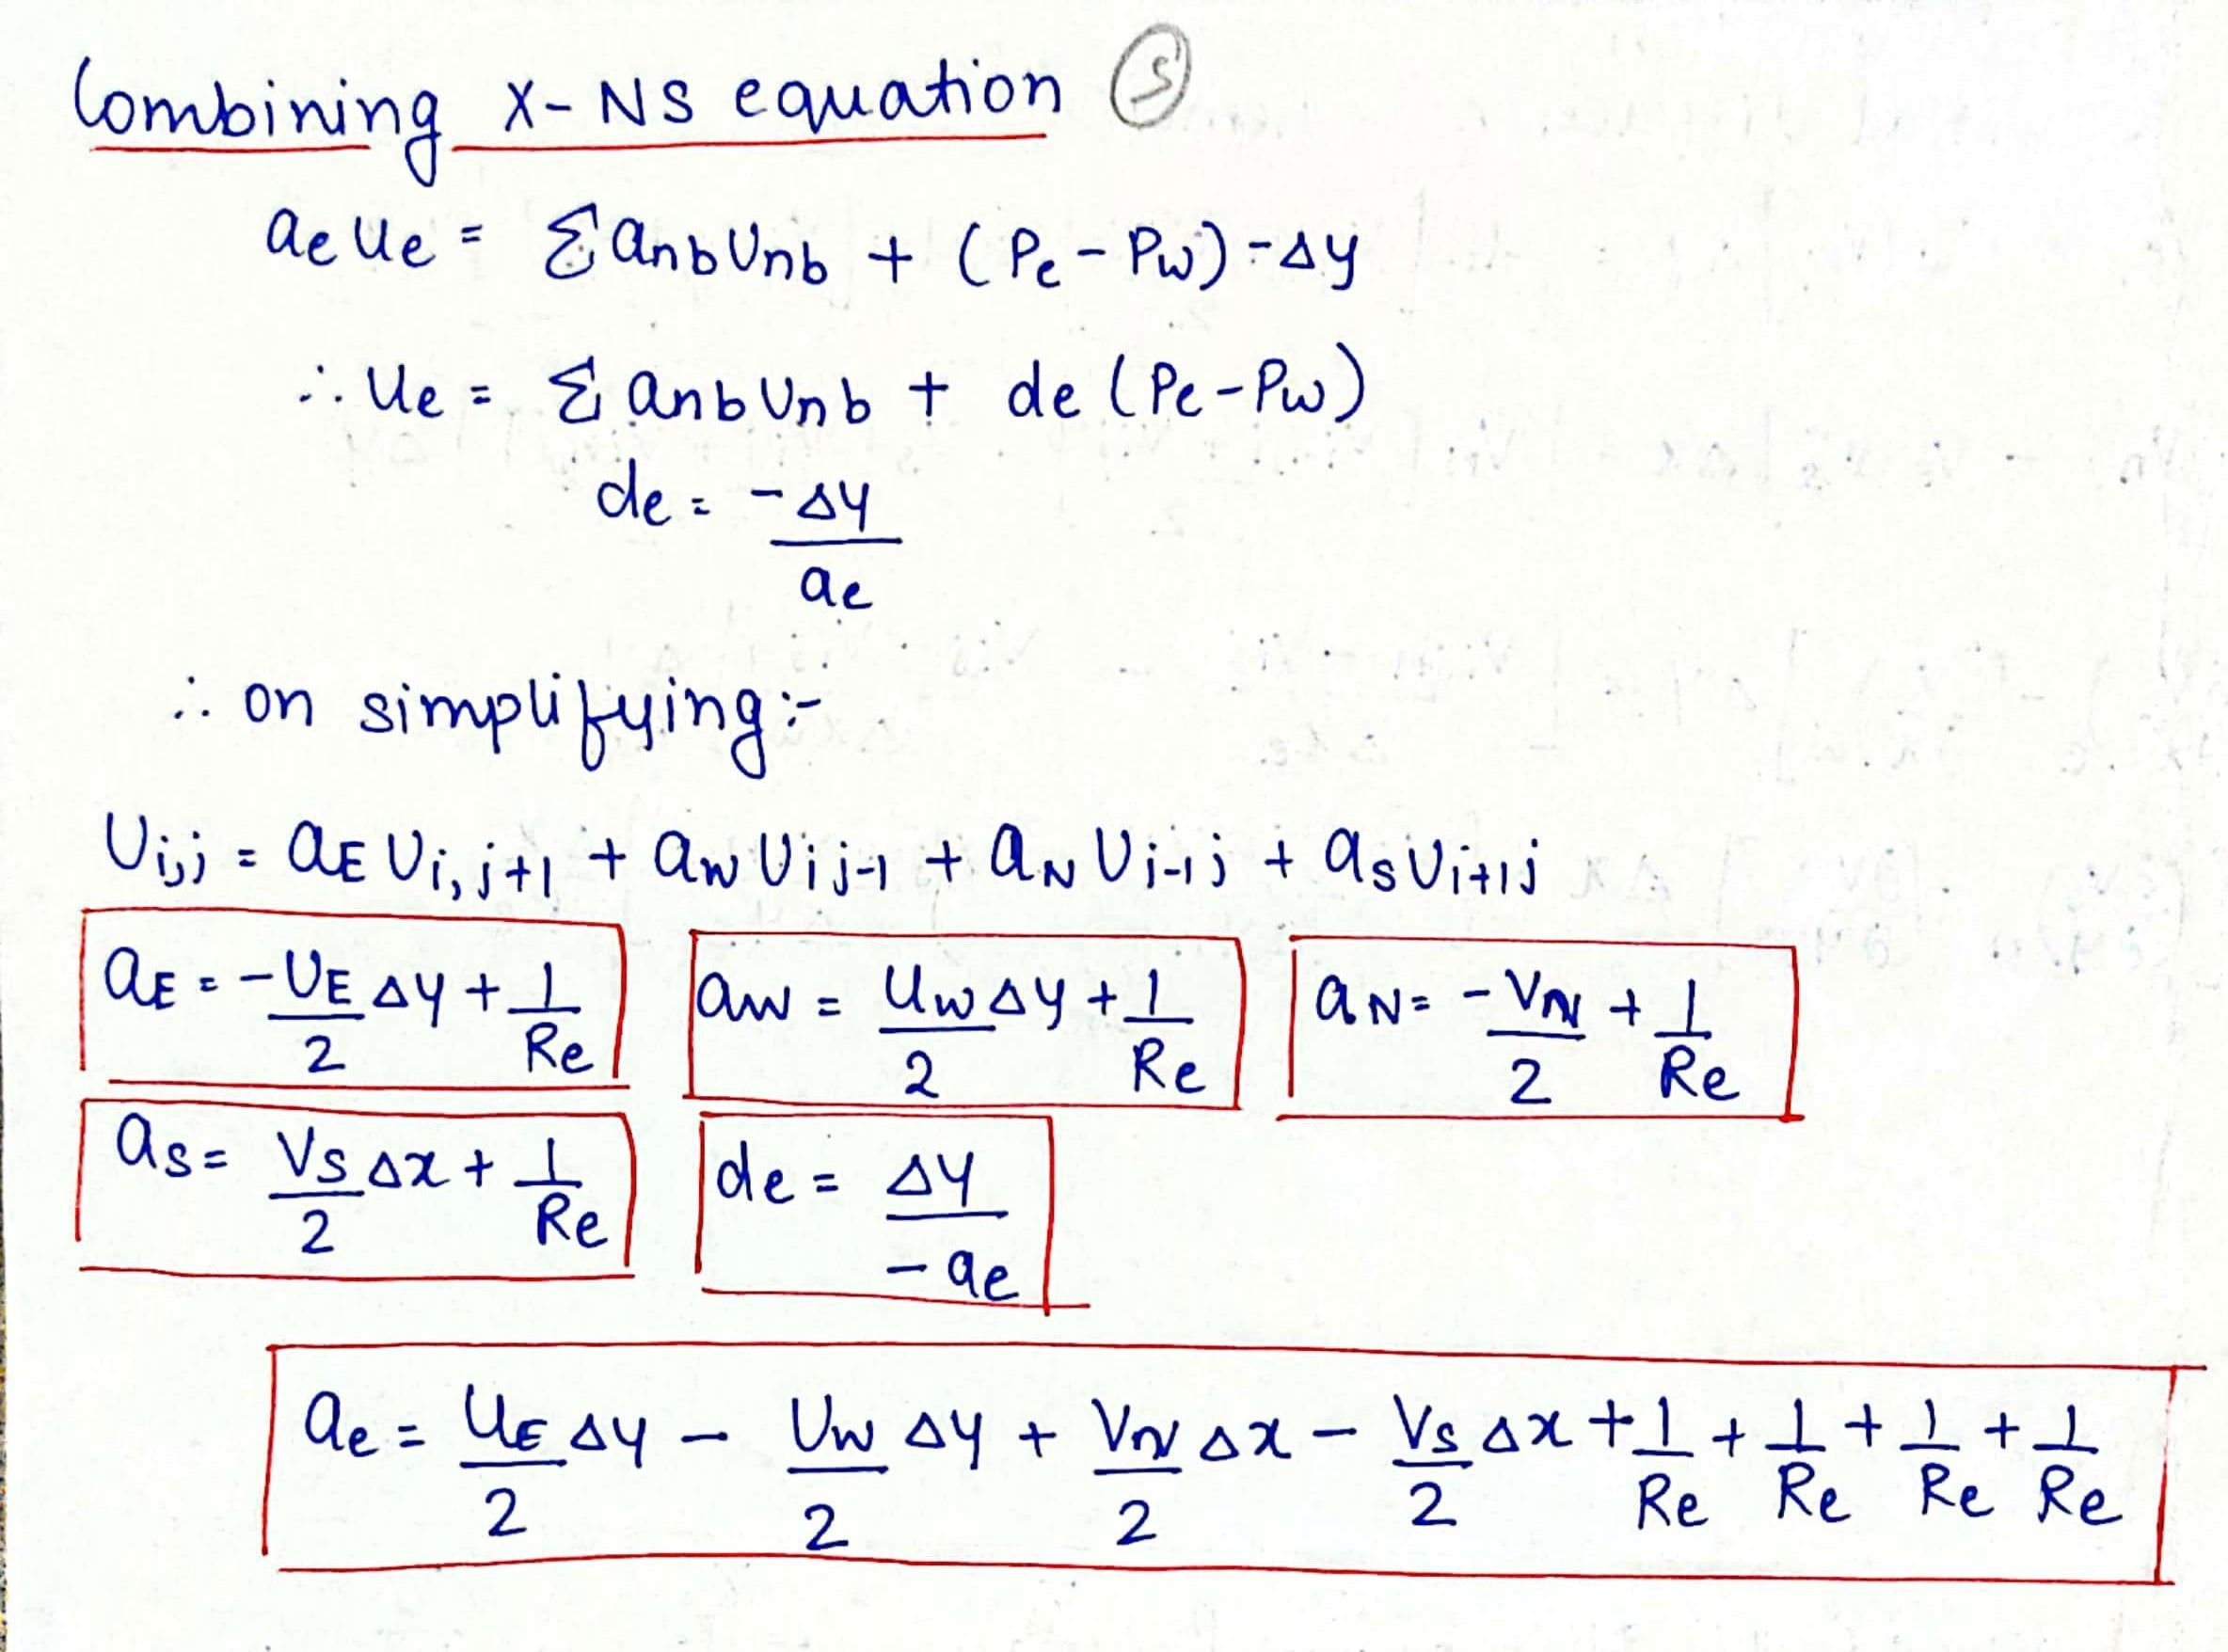 Combining X-NS equation ⑤
ae Ue = Σ anb Unb + (Pe - Pw) - Δy
∴ Ue = Σ anb Unb + de (Pe - Pw)
de = -Δy / ae
∴ on simplifying:-
Ui,j = aE Ui,j+1 + aw Uij-1 + aN Ui-1j + as Ui+1j
aE = -UE/2 Δy + 1/Re
aw = Uw/2 Δy + 1/Re
aN = -VN/2 + 1/Re
as = Vs/2 Δx + 1/Re
de = Δy / -ae
ae = UE/2 Δy - Uw/2 Δy + VN/2 Δx - Vs/2 Δx + 1/Re + 1/Re + 1/Re + 1/Re